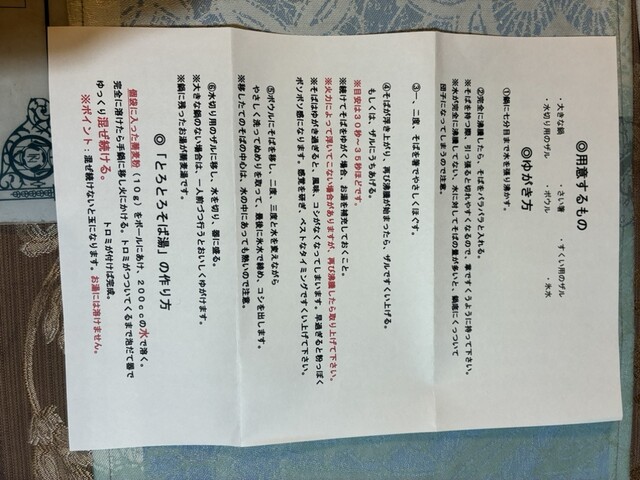 ◎用意するもの
・大きな鍋　・さい箸　・すくい用のザル
・水切り用のザル　・ボウル　・氷水
◎ゆがき方
①鍋に七分目まで水を張り沸かす。
②完全に沸騰したら、そばをパラパラと入れる。
※そばを持つ際、引っ張ると切れやすくなるので、掌ですくうように持って下さい。
※水が完全に沸騰してない、水に対してそばの量が多いと、鍋底にくっついて
団子になってしまうので注意。
③一、二度、そばを箸でやさしくほぐす。
④そばが浮き上がり、再び沸騰が始まったら、ザルですくい上げる。
もしくは、ザルにうちあげる。
※目安は30秒～35秒ほどです。
※火力によって浮いてこない場合がありますが、再び沸騰したら取り上げて下さい。
※続けてそばをゆがく場合、お湯を補充しておくこと。
※そばはゆがき過ぎると、風味、コシがなくなってしまいます。早過ぎると粉っぽく
ボソボソ感になります。感覚を研ぎ、ベストなタイミングですくい上げて下さい。
⑤ボウルにそばを移し、二度、三度と水を変えながら
やさしく洗ってぬめりを取って、最後に氷水で締め、コシを出します。
※移したてのそばの中心は、水の中にあっても熱いので注意。
⑥水切り用のザルに移し、水を切り、器に盛る。
※大きな鍋のない場合は、一人前づつ行うとおいしくゆがけます。
※鍋に残ったお湯が蕎麦湯です。
◎「とろとろそば湯」の作り方
個袋に入った蕎麦粉（10g）をボールにあけ、200ccの水で溶く。
完全に溶けたら手鍋に移し火にかける。トロミがついてくるまで泡だて器で
ゆっくり混ぜ続ける。　トロミが付けば完成。
※ポイント：混ぜ続けないと玉になります。お湯には溶けません。